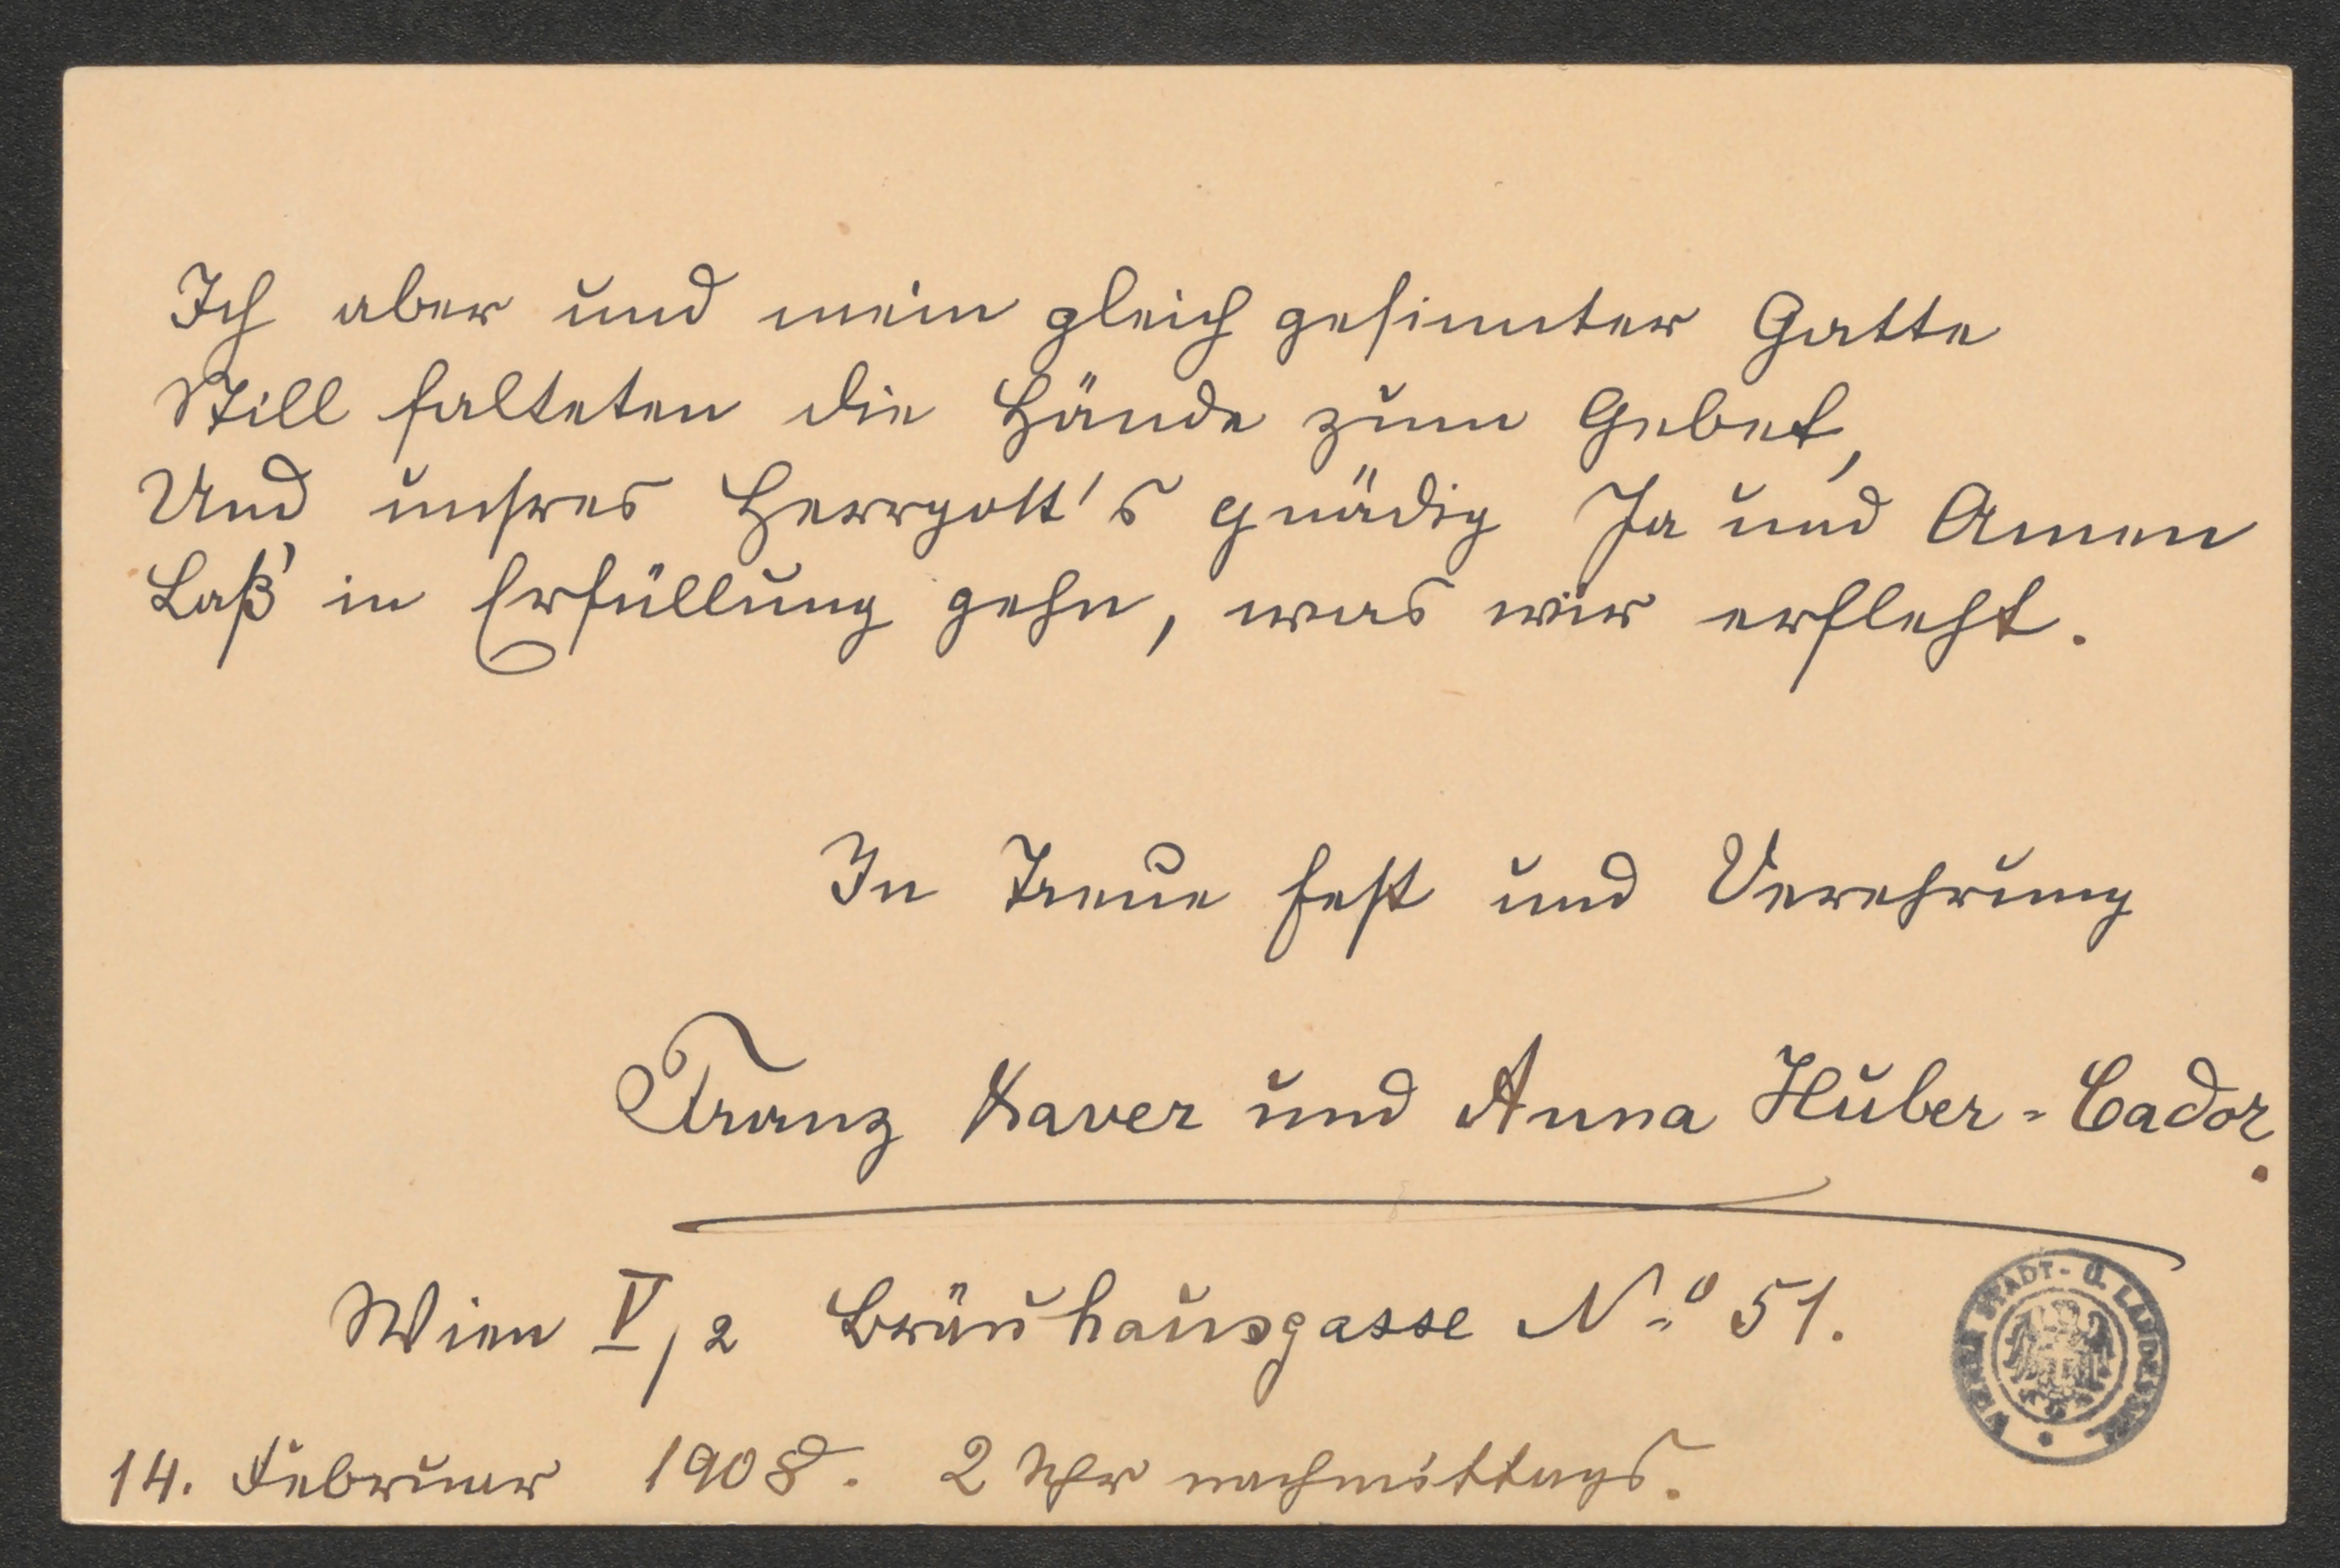 Ich aber und mein gleich gesinnter Gatte
Still falteten die Hände zum Gebet,
Und unsres Herrgott's gnädig Ja und Amen
Laß' in Erfüllung gehn, was wir erfleht.
In Treue fest und Verehrung
Franz Xaver und Anna Huber-Cador.
Wien V/2 Bräuhausgasse No 51.
WIENER STADT- U. LANDES
14. Februar 1908. 2 Uhr nachmittags.